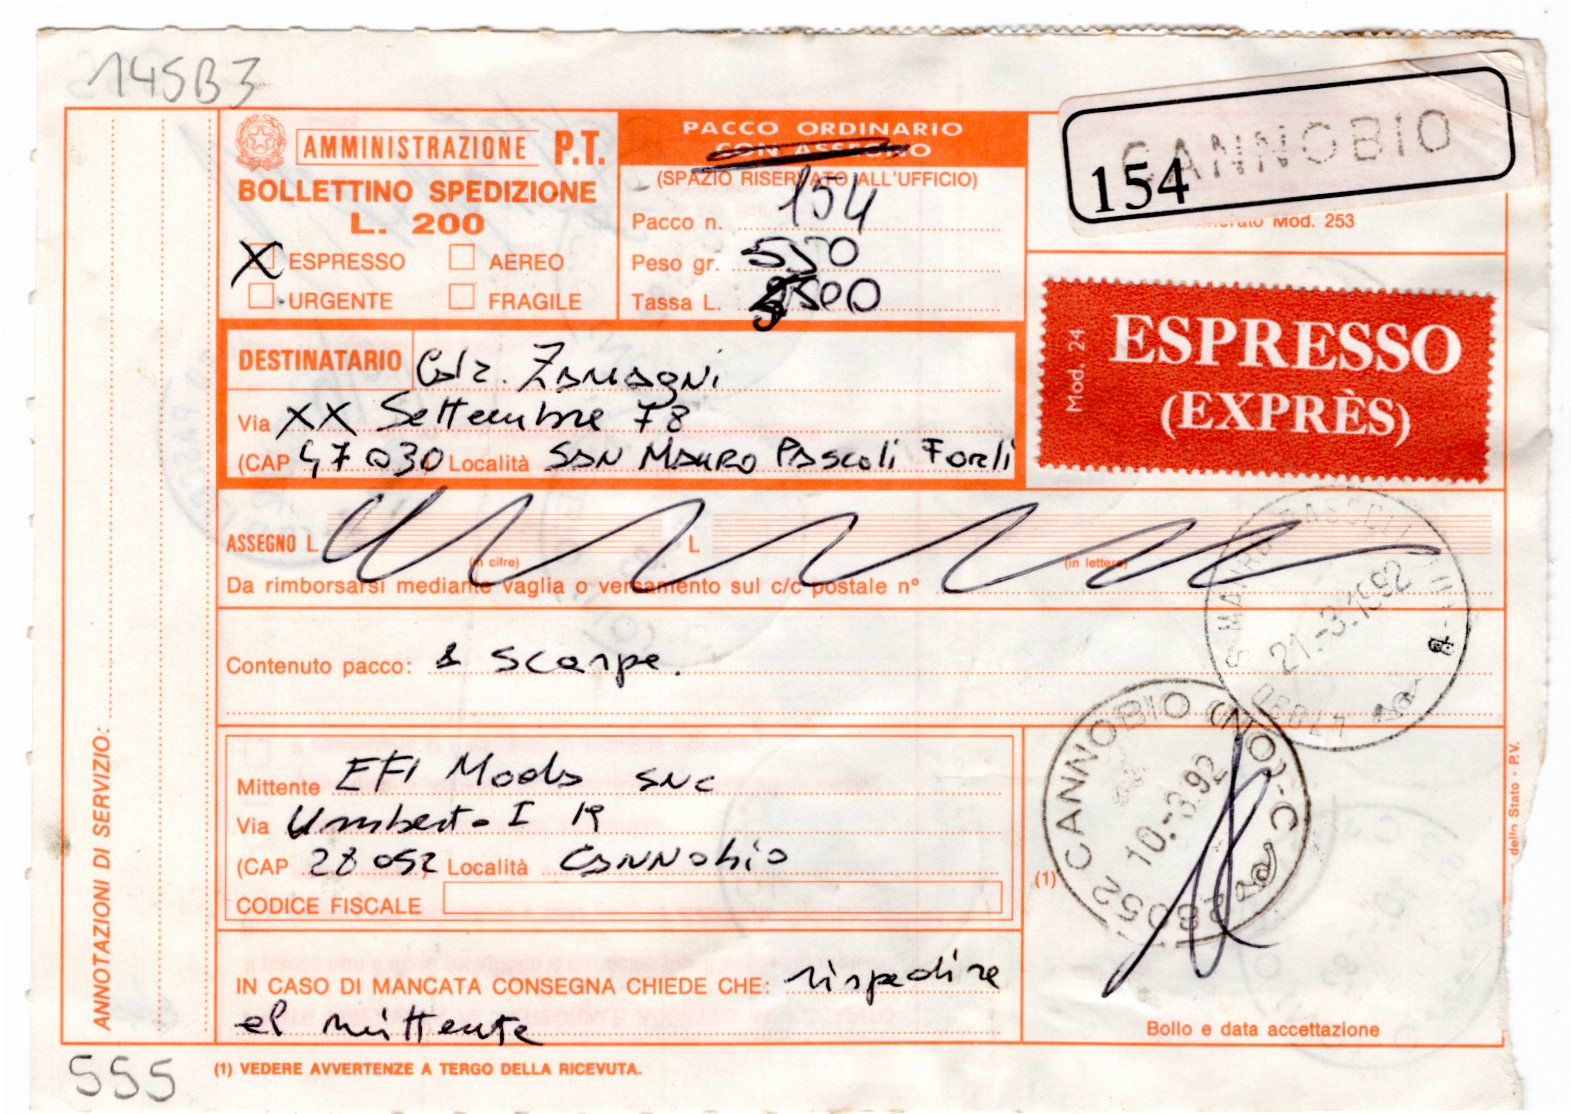 145B3
AMMINISTRAZIONE P.T.
BOLLETTINO SPEDIZIONE
L. 200
X ESPRESSO AEREO
URGENTE FRAGILE
PACCO ORDINARIO
CON ASSEGNO
(SPAZIO RISERVATO ALL'UFFICIO)
Pacco n. 154
Peso gr. 550
Tassa L. 500
CANNOBIO
154
Mod. 253
Mod. 24
ESPRESSO
(EXPRÈS)
DESTINATARIO Calz. Zamagni
Via XX Settembre 78
(CAP 47030 Località San Mauro Pascoli Forlì
ASSEGNO L. (in cifre) L. (in lettere)
Da rimborsarsi mediante vaglia o versamento sul c/c postale n°
Contenuto pacco: Scarpe.
21.-3.1992
47030
Mittente EFI Moda snc
Via Umberto I 19
(CAP 28052 Località Cannobio
CODICE FISCALE
28052 CANNOBIO (NO)-C
10.-3.92
(1)
IN CASO DI MANCATA CONSEGNA CHIEDE CHE: rispedire
al mittente
Bollo e data accettazione
ANNOTAZIONI DI SERVIZIO:
dello Stato - P.V.
555
(1) VEDERE AVVERTENZE A TERGO DELLA RICEVUTA.